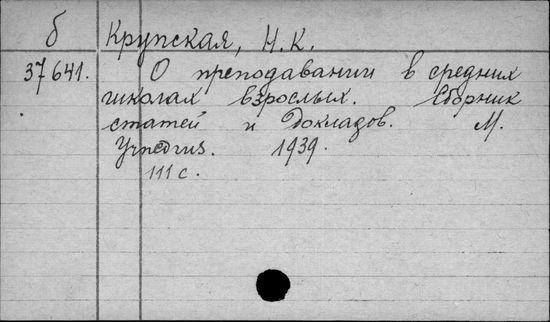 б Крупская, Н.К.
37641. О преподавании в средних
школах взрослых. Сборник
статей и докладов. М.
Учпедгиз. 1939.
111 с.